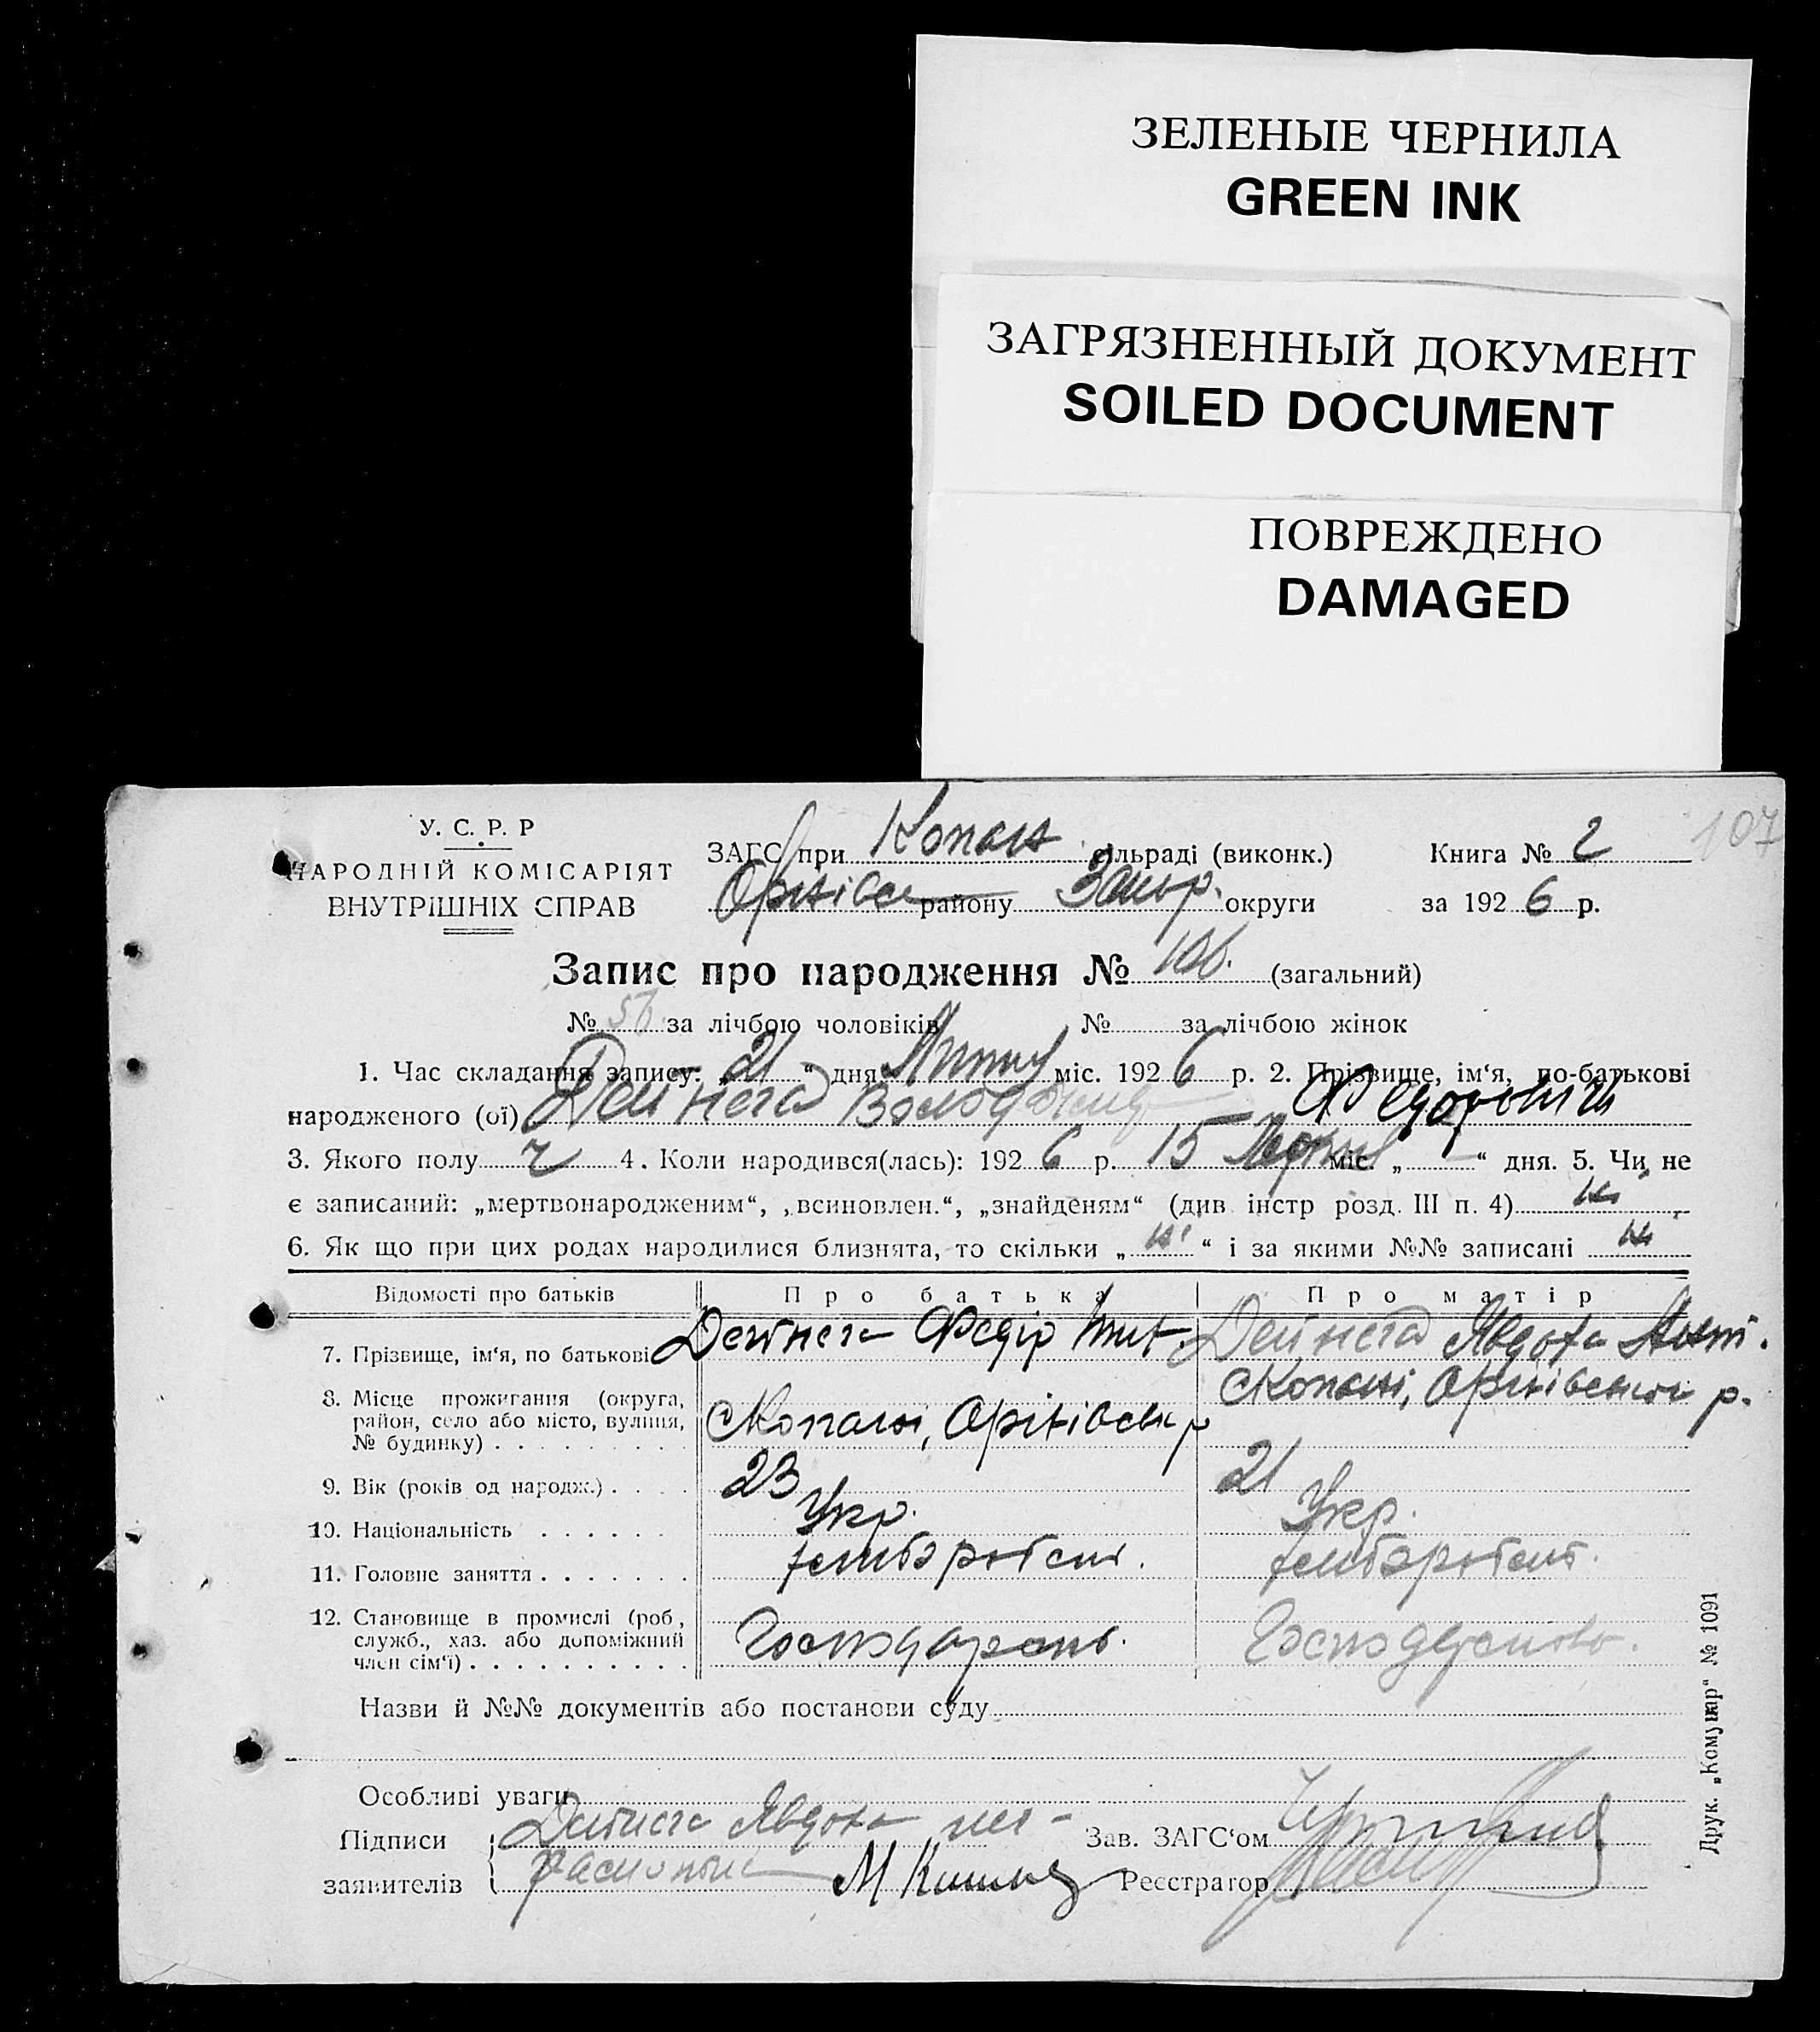 ЗЕЛЕНЫЕ ЧЕРНИЛА
GREEN INK
ЗАГРЯЗНЕННЫЙ ДОКУМЕНТ
SOILED DOCUMENT
ПОВРЕЖДЕНО
DAMAGED
107
У. С. Р. Р
НАРОДНІЙ КОМІСАРІЯТ
ВНУТРІШНІХ СПРАВ
ЗАГС при Копан сільраді (виконк.) Книга № 2
Оріхівськ району Запор. округи за 1926 р.
Запис про народження № 106. (загальний)
№ 56 за лічбою чоловіків № за лічбою жінок
1. Час складання запису: 21 “ дня Липня міс. 1926 р. 2. Прізвище, ім‘я, по-батькові
народженого (ої) Дейнега Володимир Федорович
3. Якого полу ч 4. Коли народився(лась): 1926 р. 15 міс. „ — “ дня. 5. Чи не
є записаний: „мертвонародженим“, „всиновлен.“, „знайденям“ (див інстр розд. III п. 4) ні
6. Як що при цих родах народилися близнята, то скільки „ ні “ і за якими №№ записані ні
Відомості про батьків Про батька Про матір
7. Прізвище, ім‘я, по батькові Дейнега Федір Дейнега Явдоха
8. Місце прожигання (округа, район, село або місто, вулиця, № будинку) . . . . . . . . . Копані, Оріхівськ р Копані, Оріхівського р.
9. Вік (років од народж.) . . . . 23 21
10. Національність . . . . . . Укр. Укр.
11. Головне заняття . . . . . . . хлібороб хлібороб
12. Становище в промислі (роб, служб., хаз. або допоміжний член сім‘ї) . . . . . . . . . .
Назви й №№ документів або постанови суду
Особливі уваги
Підписи Дейнега Явдоха не- Зав. ЗАГС‘ом
заявителів Реєстратор
Друк. „Комунар“ № 1091